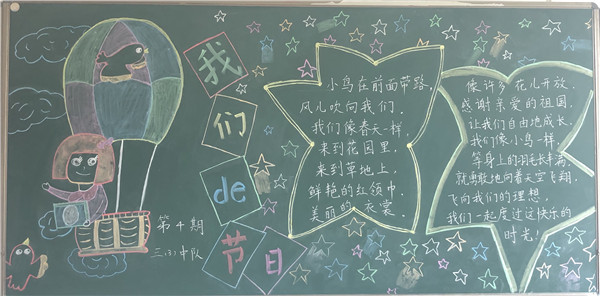 我
们
de
节
日
第4期
三(3)中队
小鸟在前面带路,
风儿吹向我们,
我们像春天一样,
来到花园里,
来到草地上,
鲜艳的红领巾,
美丽的衣裳,
像许多花儿开放.
感谢亲爱的祖国,
让我们自由地成长,
我们像小鸟一样,
等身上的羽毛长丰满,
就勇敢地向着天空飞翔,
飞向我们的理想,
我们一起度过这快乐的
时光!